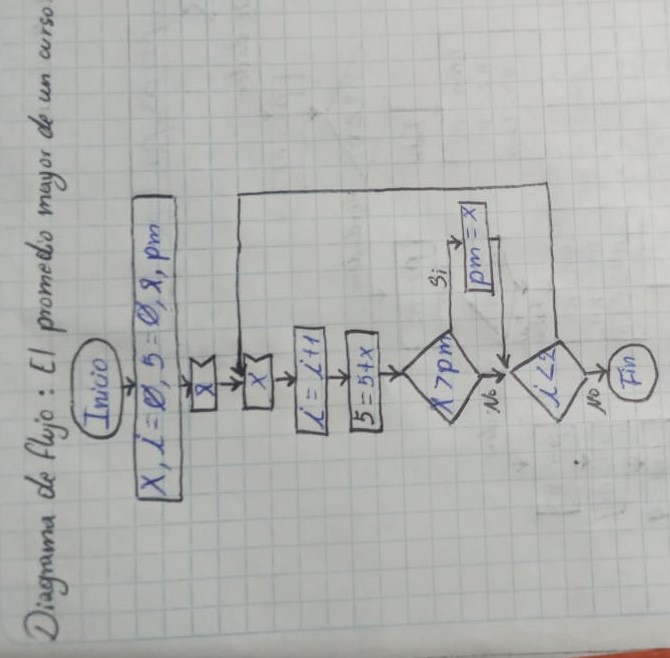 Diagrama de flujo: El promedio mayor de un curso.
Inicio
X, i = 0, S = 0, &, pm
&
X
i = i+1
S = S+x
X > pm
Si
pm = x
No
i < 2
No
Fin